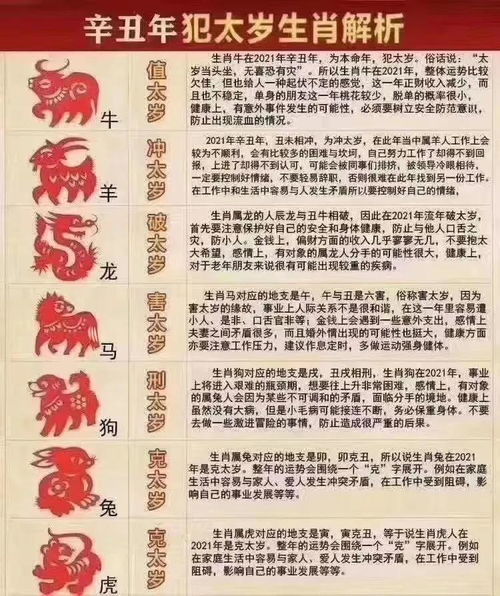 辛丑年犯太岁生肖解析
牛
值太岁
生肖牛在2021年辛丑年,为本命年,犯太岁。俗话说:“太
岁当头坐,无喜恐有灾”。所以生肖牛在2021年,整体运势比较
欠佳,但也给人一种起伏不定的感觉,这一年正财收入减少,而
且也不稳定,单身的朋友这一年桃花较少,脱单的概率很小,
健康上,有意外事件发生的可能性,必须要树立安全防范意识,
防止出现流血的情况。
羊
冲太岁
2021年辛丑年,丑未相冲,为冲太岁,在此年当中属羊人工作上会
较为不顺利,会有比较多的困难与坎坷,自己努力工作了却得不到回
报,上进了却得不到认可,可能会被同事们排挤,被领导冷眼相待,
一定要控制好情绪,不要轻易辞职,否则很难在此年找到另一份工作。
在工作中和生活中容易与人发生矛盾所以要控制好自己的情绪,
龙
破太岁
生肖属龙的人辰龙与丑牛相破,因此在2021年流年破太岁,
首先要注意保护好自己的安全和身体健康,防止与他人口舌之
灾,防小人。金钱上,偏财方面的收入几乎寥寥无几,不要抱太
大希望,感情上,有对象的属龙人分手的可能性很大,健康上,
对于老年朋友来说很有可能出现较重的疾病。
马
害太岁
生肖马对应的地支是午,午与丑是六害,俗称害太岁,因为
害太岁的缘故,事业上人际关系不是很和谐,在这一年里容易遭
小人、是非、口舌官非等;金钱上会遇到一些意外支出,感情上
夫妻之间矛盾很多,而且婚外情出现的可能性也挺大,健康方面
亦要注意工作压力,建议作息定时,多做运动强身健体。
狗
刑太岁
生肖狗对应的地支是戌,丑戌相刑,生肖狗在2021年,事业
上将进入艰难的瓶颈期,想要往上升非常困难,感情上,有对象
的属兔人会因为某些不可调和的矛盾,面临分手的境地。健康上
虽然没有大病,但是小毛病可能接连不断,务必保重身体。不要
去做一些激进冒险的事情,防止造成很严重的后果。
兔
克太岁
生肖属兔对应的地支是卯,卯克丑,所以说生肖兔在2021
年是克太岁。整年的运势会围绕一个“克”字展开。例如在家庭
生活中容易与家人、爱人发生冲突矛盾,在工作中受到阻碍,影
响自己的事业发展等等。
虎
克太岁
生肖属虎对应的地支是寅,寅克丑,等于说生肖虎人在
2021年是克太岁。整年的运势会围绕一个“克”字展开。例如
在家庭生活中容易与家人、爱人发生冲突矛盾,在工作中受到
阻碍,影响自己的事业发展等等。